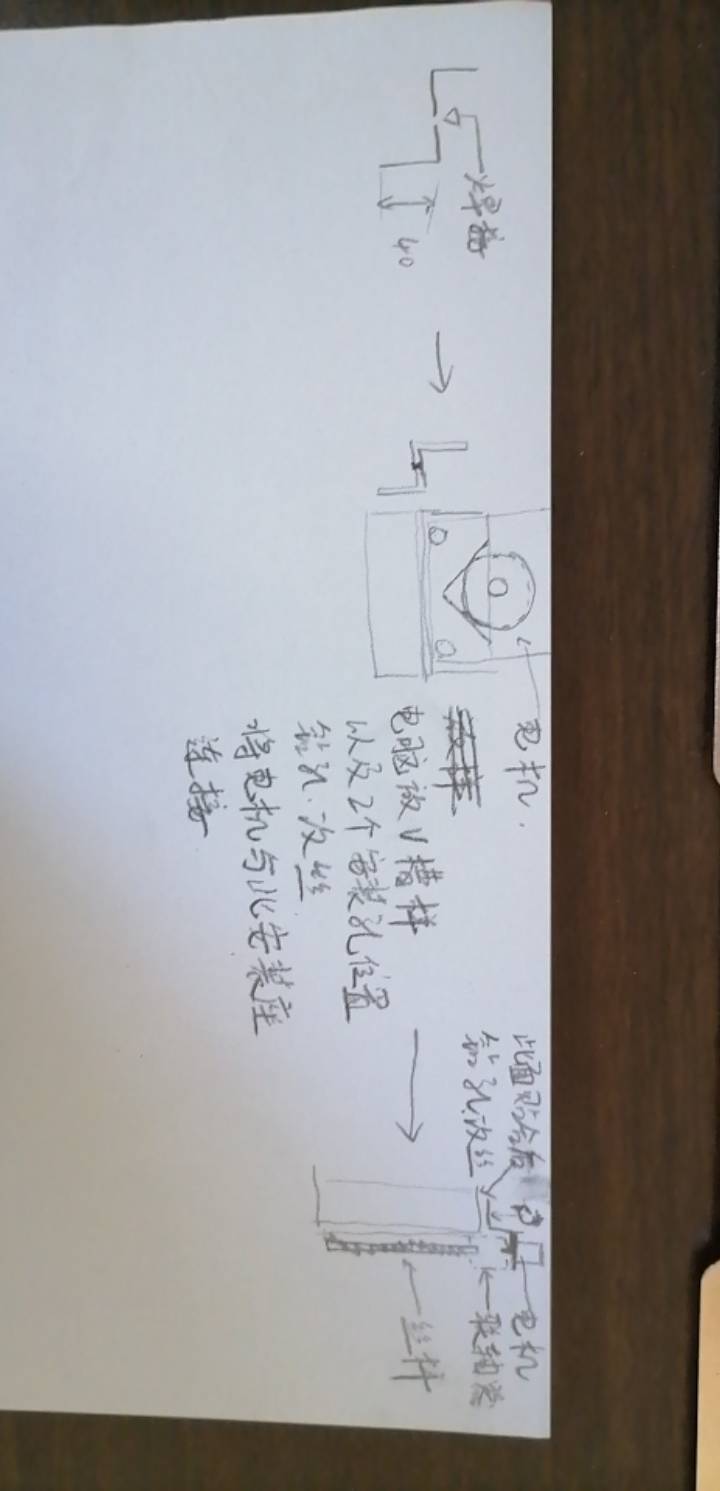 焊接
40
电机
放样
电脑放V槽样
以及2个安装孔位置
钻孔.攻丝
将电机与此安装座
连接
此面贴合后
钻孔攻丝
电机
联轴器
丝杆